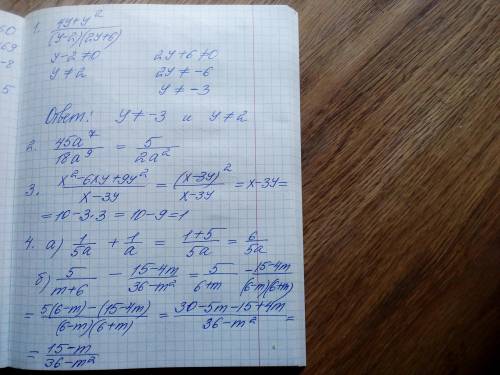 50
69
-8
5
1. (4y+y²)/((y-2)(2y+6))
y-2≠0 2y+6≠0
y≠2 2y≠-6
y≠-3
Ответ: y≠-3 и y≠2
2. 45a⁷/18a⁹ = 5/2a²
3. (x²-6xy+9y²)/(x-3y) = (x-3y)²/(x-3y) = x-3y=
=10-3·3=10-9=1
4. а) 1/5a + 1/a = (1+5)/5a = 6/5a
б) 5/(m+6) - (15-4m)/(36-m²) = 5/(6+m) - (15-4m)/((6-m)(6+m))
= (5(6-m)-(15-4m))/((6-m)(6+m)) = (30-5m-15+4m)/(36-m²) =
= (15-m)/(36-m²)